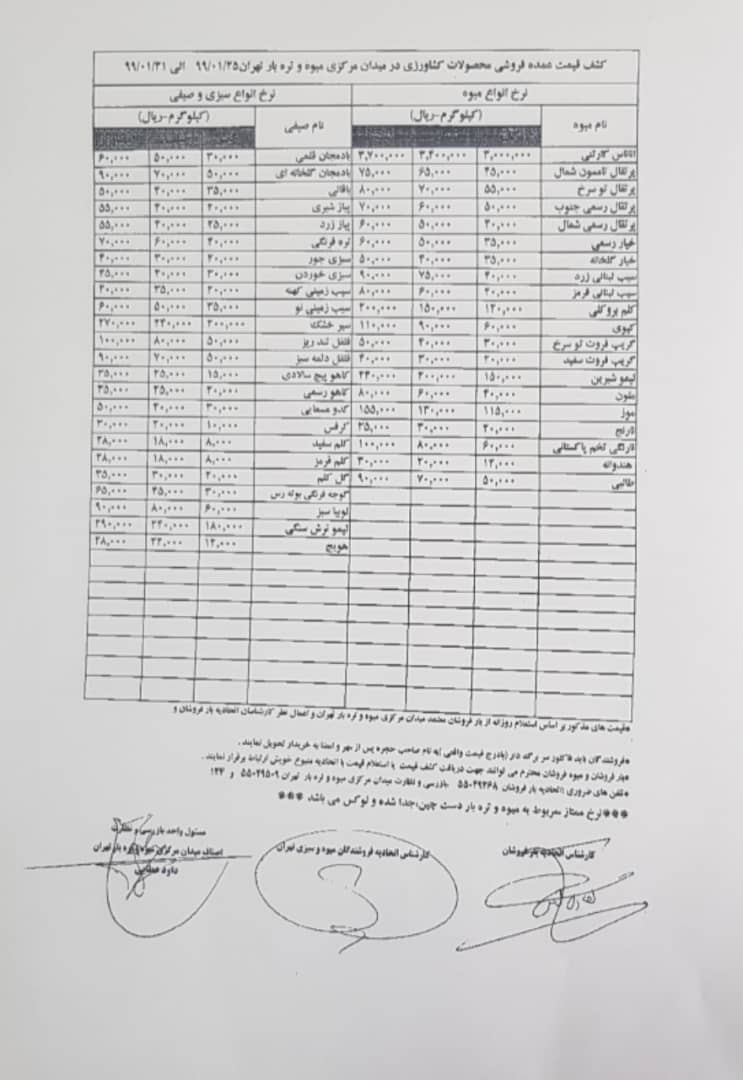 کشف قیمت عمده فروشی محصولات کشاورزی در میدان مرکزی میوه و تره بار تهران ۹۹/۰۱/۲۵ الی ۹۹/۰۱/۳۱
نرخ انواع میوه نرخ انواع سبزی و صیفی
نام میوه (کیلوگرم-ریال) نام صیفی (کیلوگرم-ریال)
آناناس کارتنی ۳,۰۰۰,۰۰۰ ۳,۴۰۰,۰۰۰ ۳,۷۰۰,۰۰۰ بادمجان قلمی ۳۰,۰۰۰ ۵۰,۰۰۰ ۶۰,۰۰۰
پرتقال تامسون شمال ۴۵,۰۰۰ ۶۵,۰۰۰ ۷۵,۰۰۰ بادمجان گلخانه ای ۵۰,۰۰۰ ۷۰,۰۰۰ ۹۰,۰۰۰
پرتقال تو سرخ ۵۵,۰۰۰ ۷۰,۰۰۰ ۸۰,۰۰۰ باقالی ۳۵,۰۰۰ ۴۰,۰۰۰ ۵۰,۰۰۰
پرتقال رسمی جنوب ۵۰,۰۰۰ ۶۰,۰۰۰ ۷۰,۰۰۰ پیاز شیری ۲۰,۰۰۰ ۴۰,۰۰۰ ۵۵,۰۰۰
پرتقال رسمی شمال ۴۰,۰۰۰ ۵۰,۰۰۰ ۶۰,۰۰۰ پیاز زرد ۲۵,۰۰۰ ۴۰,۰۰۰ ۵۵,۰۰۰
خیار رسمی ۳۵,۰۰۰ ۵۰,۰۰۰ ۶۰,۰۰۰ تره فرنگی ۴۰,۰۰۰ ۶۰,۰۰۰ ۷۰,۰۰۰
خیار گلخانه ۳۵,۰۰۰ ۴۰,۰۰۰ ۵۰,۰۰۰ سبزی جور ۲۰,۰۰۰ ۳۰,۰۰۰ ۴۰,۰۰۰
سیب لبنانی زرد ۴۰,۰۰۰ ۷۵,۰۰۰ ۹۰,۰۰۰ سبزی خوردن ۳۰,۰۰۰ ۴۰,۰۰۰ ۴۵,۰۰۰
سیب لبنانی قرمز ۴۰,۰۰۰ ۶۰,۰۰۰ ۸۰,۰۰۰ سیب زمینی کهنه ۲۰,۰۰۰ ۳۵,۰۰۰ ۴۰,۰۰۰
کلم بروکلی ۱۲۰,۰۰۰ ۱۵۰,۰۰۰ ۲۰۰,۰۰۰ سیب زمینی نو ۳۵,۰۰۰ ۵۰,۰۰۰ ۶۰,۰۰۰
کیوی ۶۰,۰۰۰ ۹۰,۰۰۰ ۱۱۰,۰۰۰ سیر خشک ۲۰۰,۰۰۰ ۲۴۰,۰۰۰ ۲۷۰,۰۰۰
گریپ فروت تو سرخ ۳۰,۰۰۰ ۴۰,۰۰۰ ۵۰,۰۰۰ فلفل تند ریز ۵۰,۰۰۰ ۸۰,۰۰۰ ۱۰۰,۰۰۰
گریپ فروت سفید ۲۰,۰۰۰ ۳۰,۰۰۰ ۴۰,۰۰۰ فلفل دلمه سبز ۵۰,۰۰۰ ۷۰,۰۰۰ ۹۰,۰۰۰
لیمو شیرین ۱۵۰,۰۰۰ ۲۰۰,۰۰۰ ۲۴۰,۰۰۰ کاهو پیچ سالادی ۱۵,۰۰۰ ۲۵,۰۰۰ ۳۵,۰۰۰
ملون ۴۰,۰۰۰ ۶۰,۰۰۰ ۸۰,۰۰۰ کاهو رسمی ۲۰,۰۰۰ ۲۵,۰۰۰ ۳۵,۰۰۰
موز ۱۱۵,۰۰۰ ۱۳۰,۰۰۰ ۱۵۵,۰۰۰ کدو مسمایی ۳۰,۰۰۰ ۴۰,۰۰۰ ۵۰,۰۰۰
نارنج ۲۰,۰۰۰ ۳۰,۰۰۰ ۳۵,۰۰۰ کرفس ۱۰,۰۰۰ ۲۰,۰۰۰ ۳۰,۰۰۰
نارنگی تخم پاکستانی ۶۰,۰۰۰ ۸۰,۰۰۰ ۱۰۰,۰۰۰ کلم سفید ۸,۰۰۰ ۱۸,۰۰۰ ۲۸,۰۰۰
هندوانه ۱۲,۰۰۰ ۲۰,۰۰۰ ۳۰,۰۰۰ کلم قرمز ۸,۰۰۰ ۱۸,۰۰۰ ۲۸,۰۰۰
طالبی ۵۰,۰۰۰ ۷۰,۰۰۰ ۹۰,۰۰۰ گل کلم ۲۰,۰۰۰ ۳۰,۰۰۰ ۳۵,۰۰۰
گوجه فرنگی بوته رس ۳۰,۰۰۰ ۴۵,۰۰۰ ۶۵,۰۰۰
لوبیا سبز ۶۰,۰۰۰ ۸۰,۰۰۰ ۹۰,۰۰۰
لیمو ترش سنگی ۱۸۰,۰۰۰ ۲۴۰,۰۰۰ ۲۹۰,۰۰۰
هویج ۱۲,۰۰۰ ۲۲,۰۰۰ ۲۸,۰۰۰
*قیمت های مذکور بر اساس استعلام روزانه از بار فروشان معتمد میدان مرکزی میوه و تره بار تهران و اعمال نظر کارشناسان اتحادیه بار فروشان و
*فروشندگان باید فاکتور سر برگ دار (بادرج قیمت واقعی) به نام صاحب حجره پس از مهر و امضا به خریدار تحویل نمایند.
*بار فروشان و میوه فروشان محترم می توانند جهت دریافت کشف قیمت یا استعلام قیمت با اتحادیه متبوع خویش ارتباط برقرار نمایند.
*تلفن های ضروری: اتحادیه بار فروشان ۵۵۰۴۹۲۶۸ بازرسی و نظارت میدان مرکزی میوه و تره بار تهران ۵۵۰۴۹۵۰۹ و ۱۲۴
***نرخ ممتاز مربوط به میوه و تره بار دست چین، جدا شده و لوکس می باشد ***
کارشناس اتحادیه بارفروشان
کارشناس اتحادیه فروشندگان میوه و سبزی تهران
مسئول واحد بازرسی و نظارت
اصناف میدان مرکزی میوه و تره بار تهران
داود